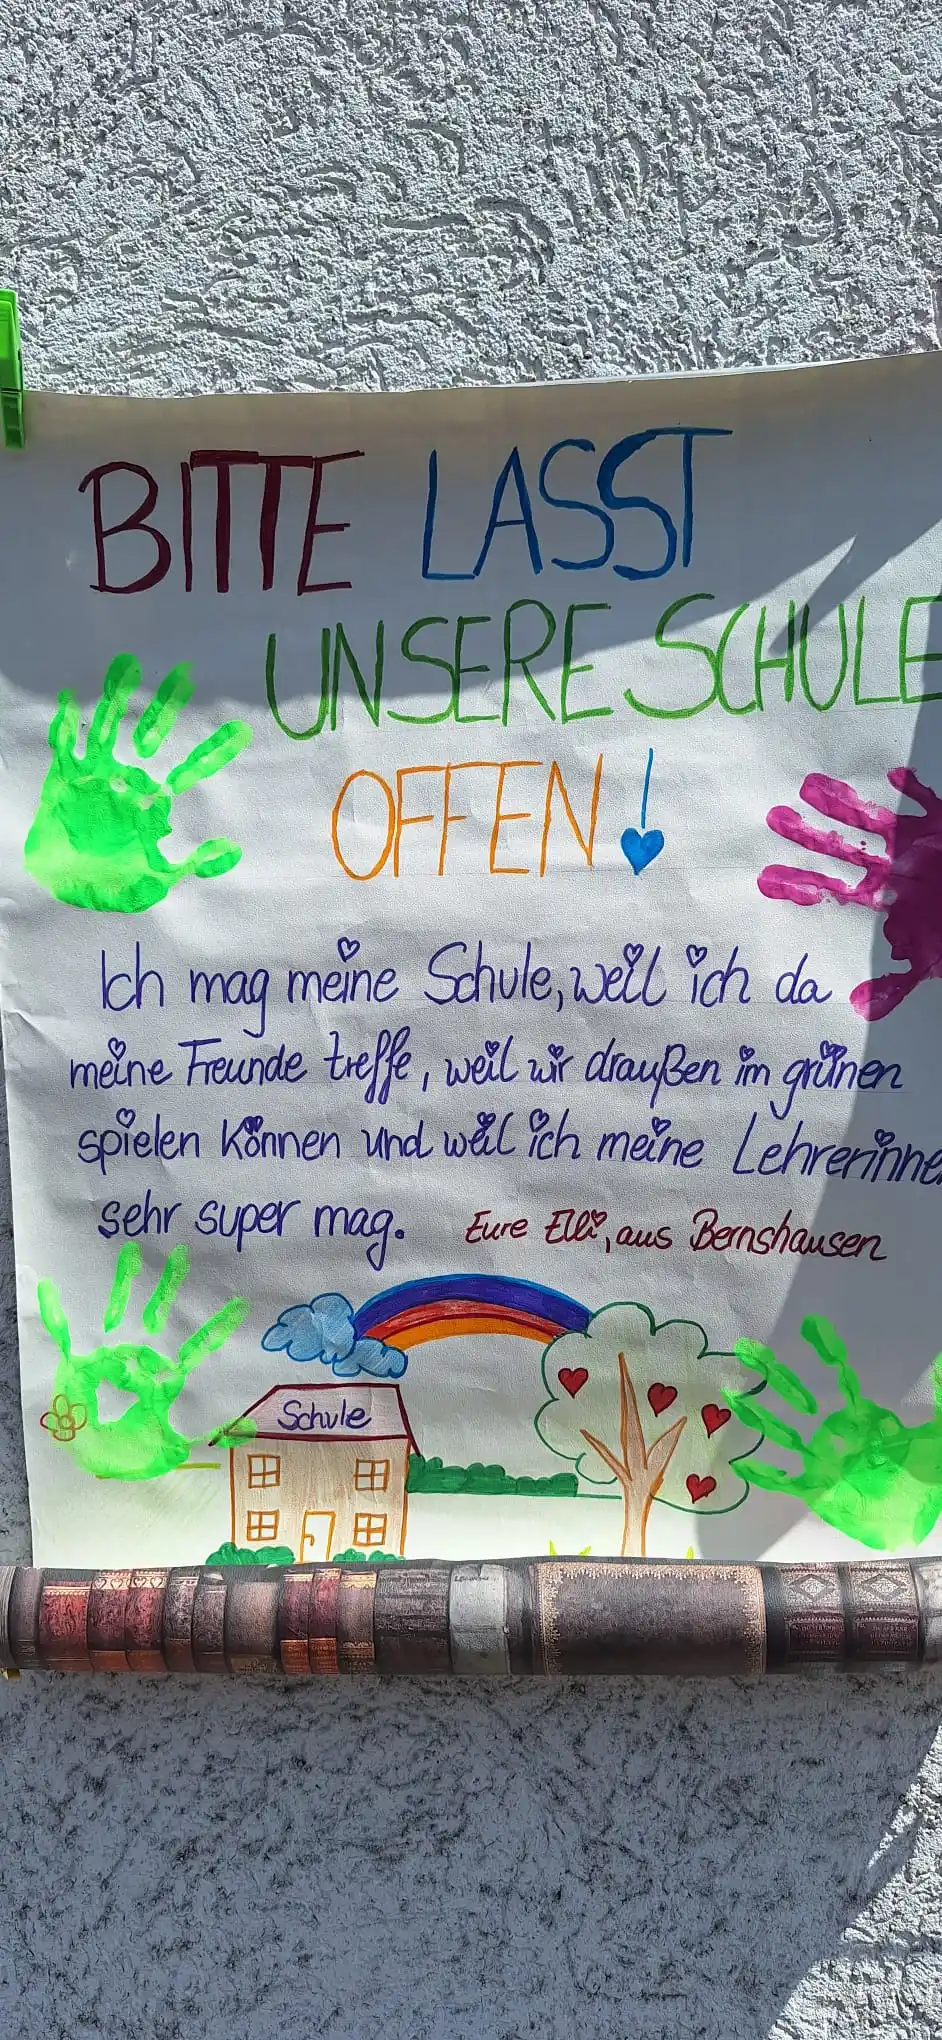 BITTE LASST
UNSERE SCHULE
OFFEN!
Ich mag meine Schule, weil ich da
meine Freunde treffe, weil wir draußen im grünen
spielen können und weil ich meine Lehrerinnen
sehr super mag. Eure Elli, aus Bernshausen
Schule